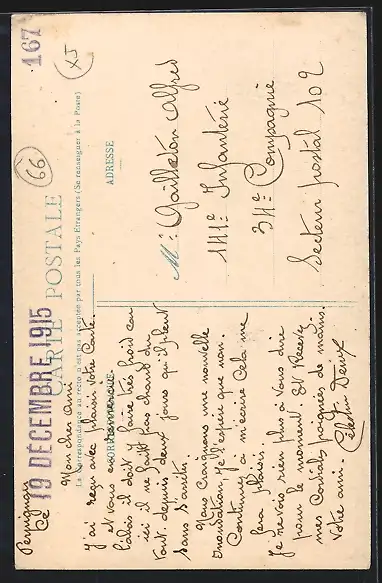 167
XJ
66
CARTE POSTALE
La Correspondance au recto n'est pas acceptée par tous les Pays Etrangers (Se renseigner à la Poste)
CORRESPONDANCE
ADRESSE
Perpignan
Le 19 DECEMBRE 1915
Mon cher Ami
J'ai reçu avec plaisir votre Carte
et vous en remercie.
il doit y faire très froid car
ici il ne fait pas chaud du
tout. depuis deux jours qu'il pleut
sans s'arrêter.
Nous Craignons une nouvelle
inondation, je l'espère que non.
Continuez à m'écrire Cela me
fera plaisir
Je ne vois rien plus à Vous dire
pour le moment. Et Recevez
mes Cordiales poignées de mains.
Votre ami.
Mr Gailleton Alfred
141e Infanterie
34e Compagnie
Secteur postal 102